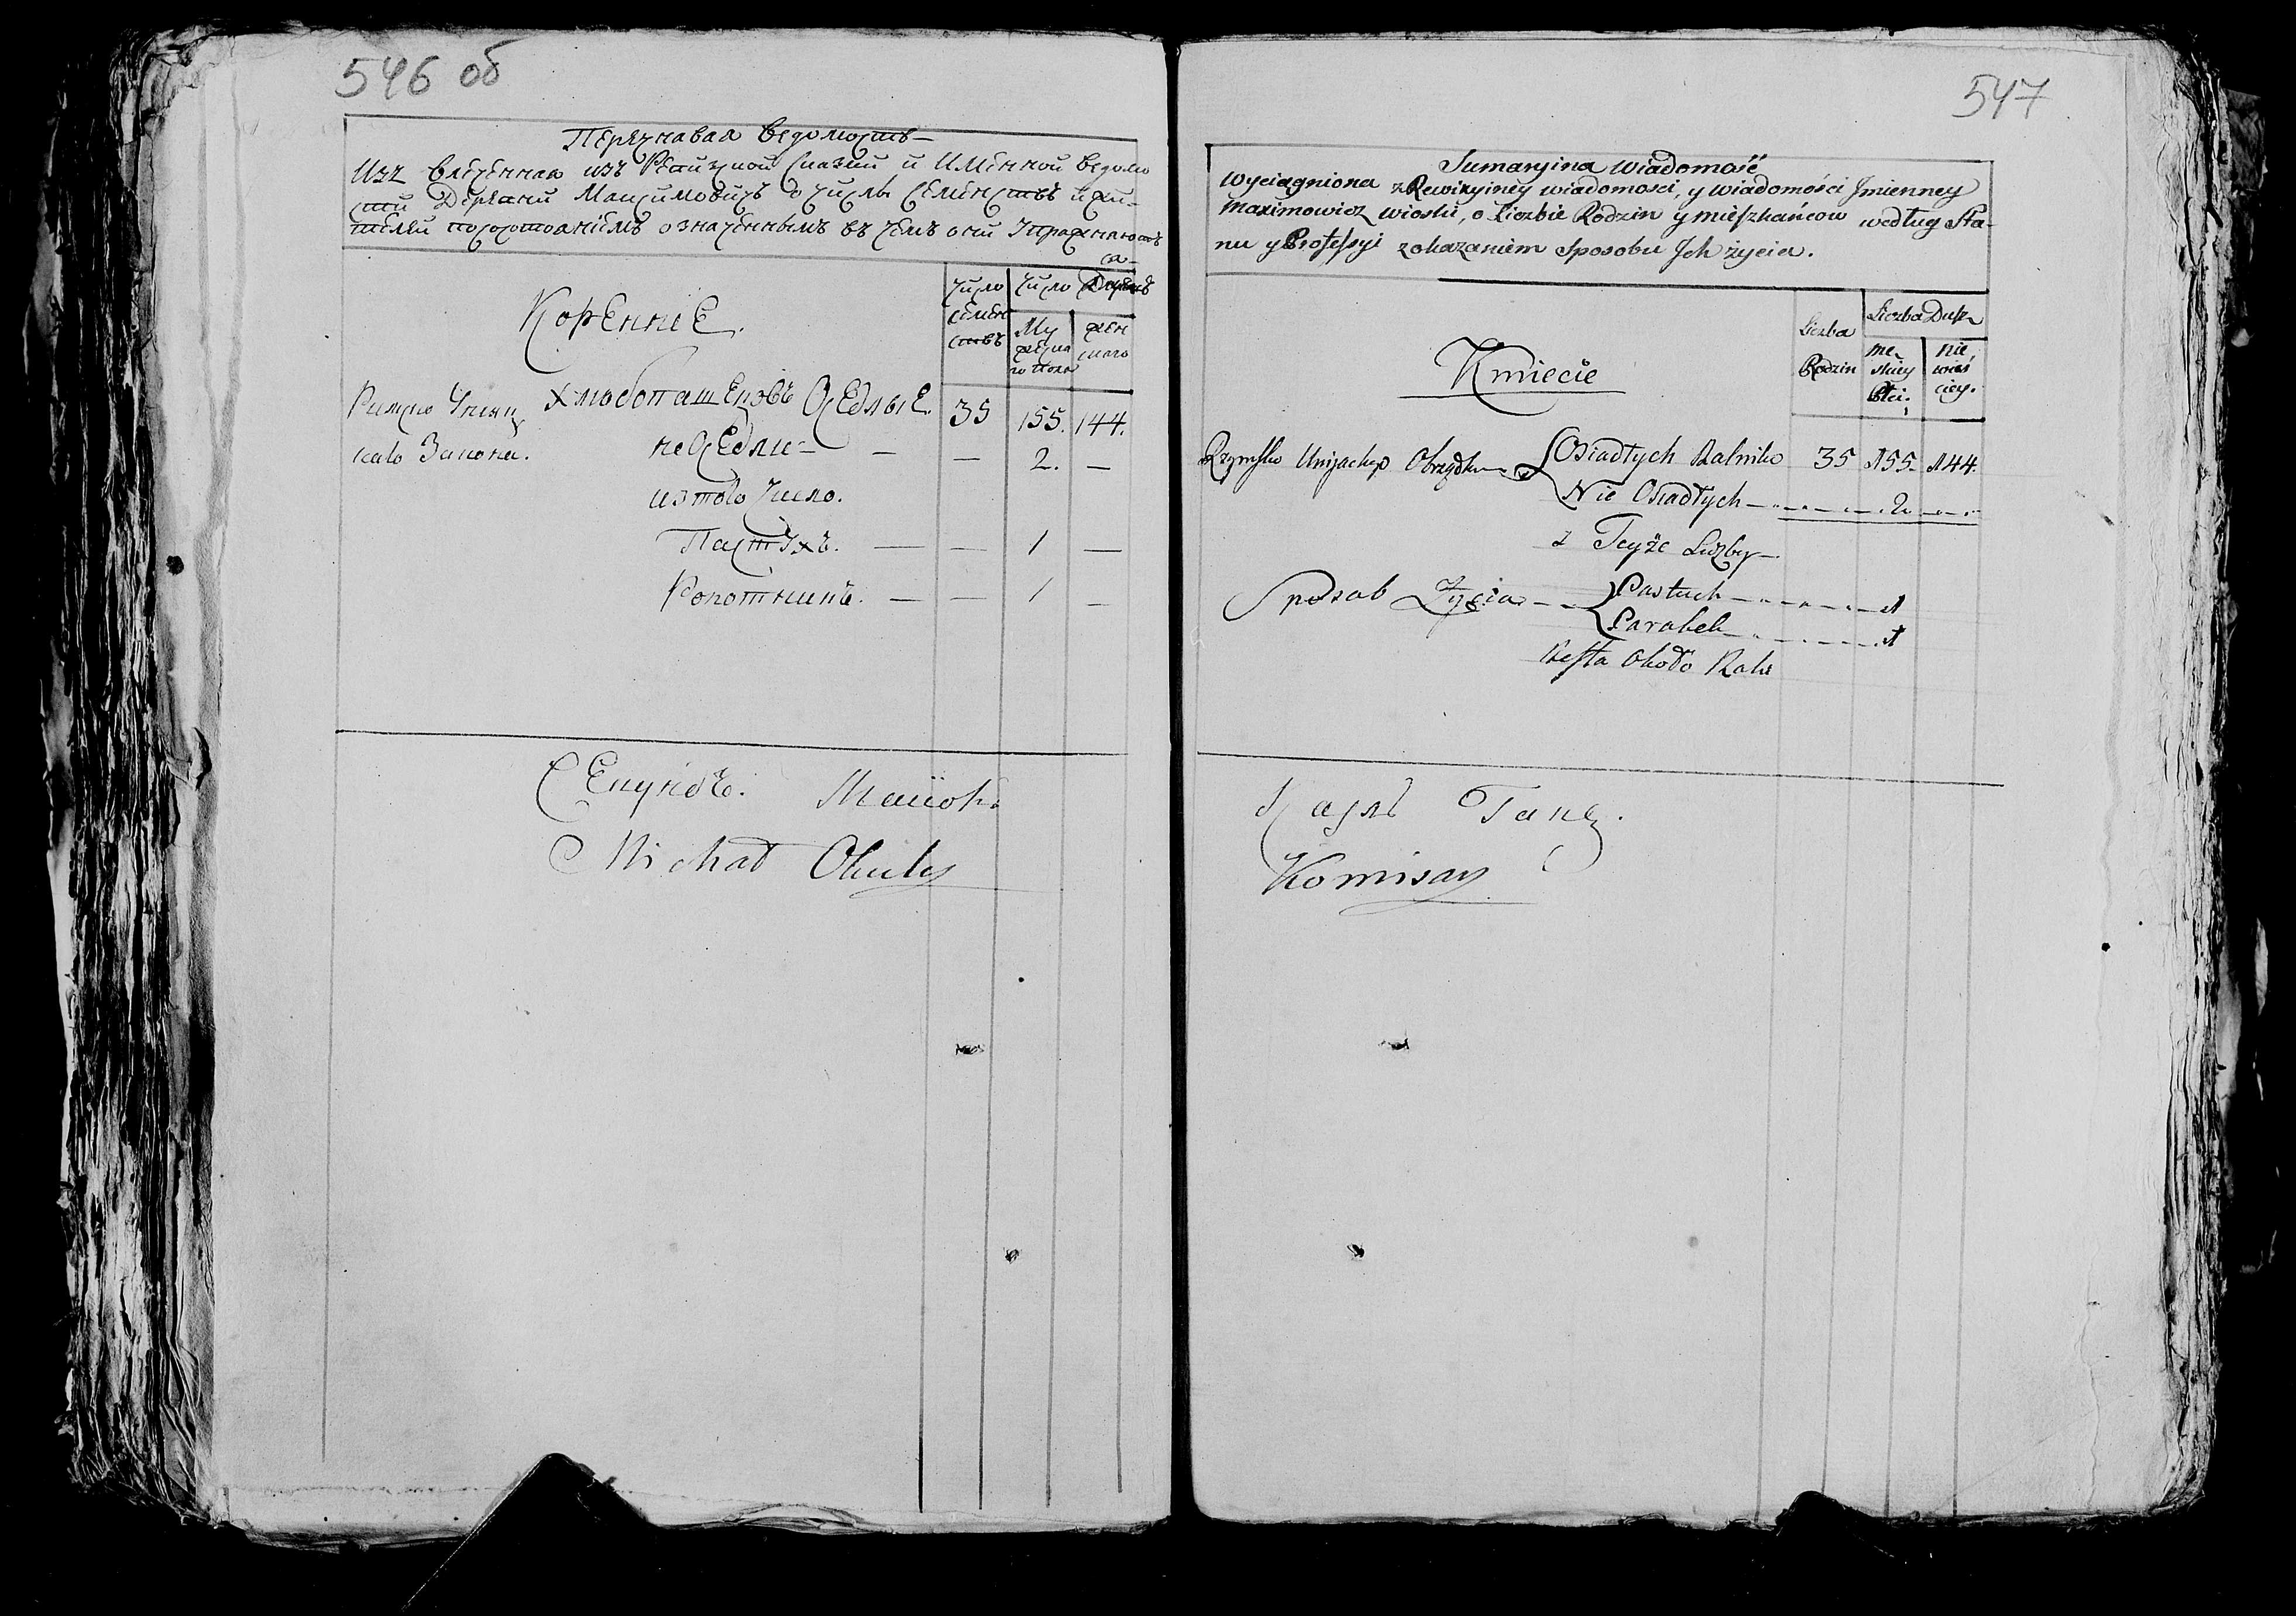 546 об
Перечнавая Ведомость
Изъ влеченная изъ Ревизкой Сказки и Именной ведомо
сти Деревни Максимовичъ о числе Семенствъ и жи-
телей по состояниемъ означеннымъ въ чемъ они упражнаютъ
са
Число Семенствъ
Число Душъ
Мужескаго пола
женскаго
Коренние.
Римско Униц
каго Закона.
Хлебопашецовъ Оседлые. 35 155. 144.
не Оседли — — 2. —
из того число.
Пастухъ. — — 1 —
— — 1 —
Секундъ. Маиоръ
Michał
547
Sumaryina Wiadomość
Wyciągniona z Rewizyiney wiadomosci, y wiadomości Jmienney
Maximowicz wioski, o Liczbie Rodzin y mieszkańcow według Sta-
nu y Professyi z okazaniem Sposobu Jch życia.
Liczba Rodzin
Liczba Dusz
męskiey Płci.
niewiesciey.
Kmiecie
Rzymsko Unijackego Obrządku Osiadłych Rolnikow 35 155. 144.
Nie Osiadłych 2
z Teyże Liczby
Sposob Życia Pastuch 1
Parobek 1
Reszta Około Roli
Карлъ Ганъ.
Komisarz